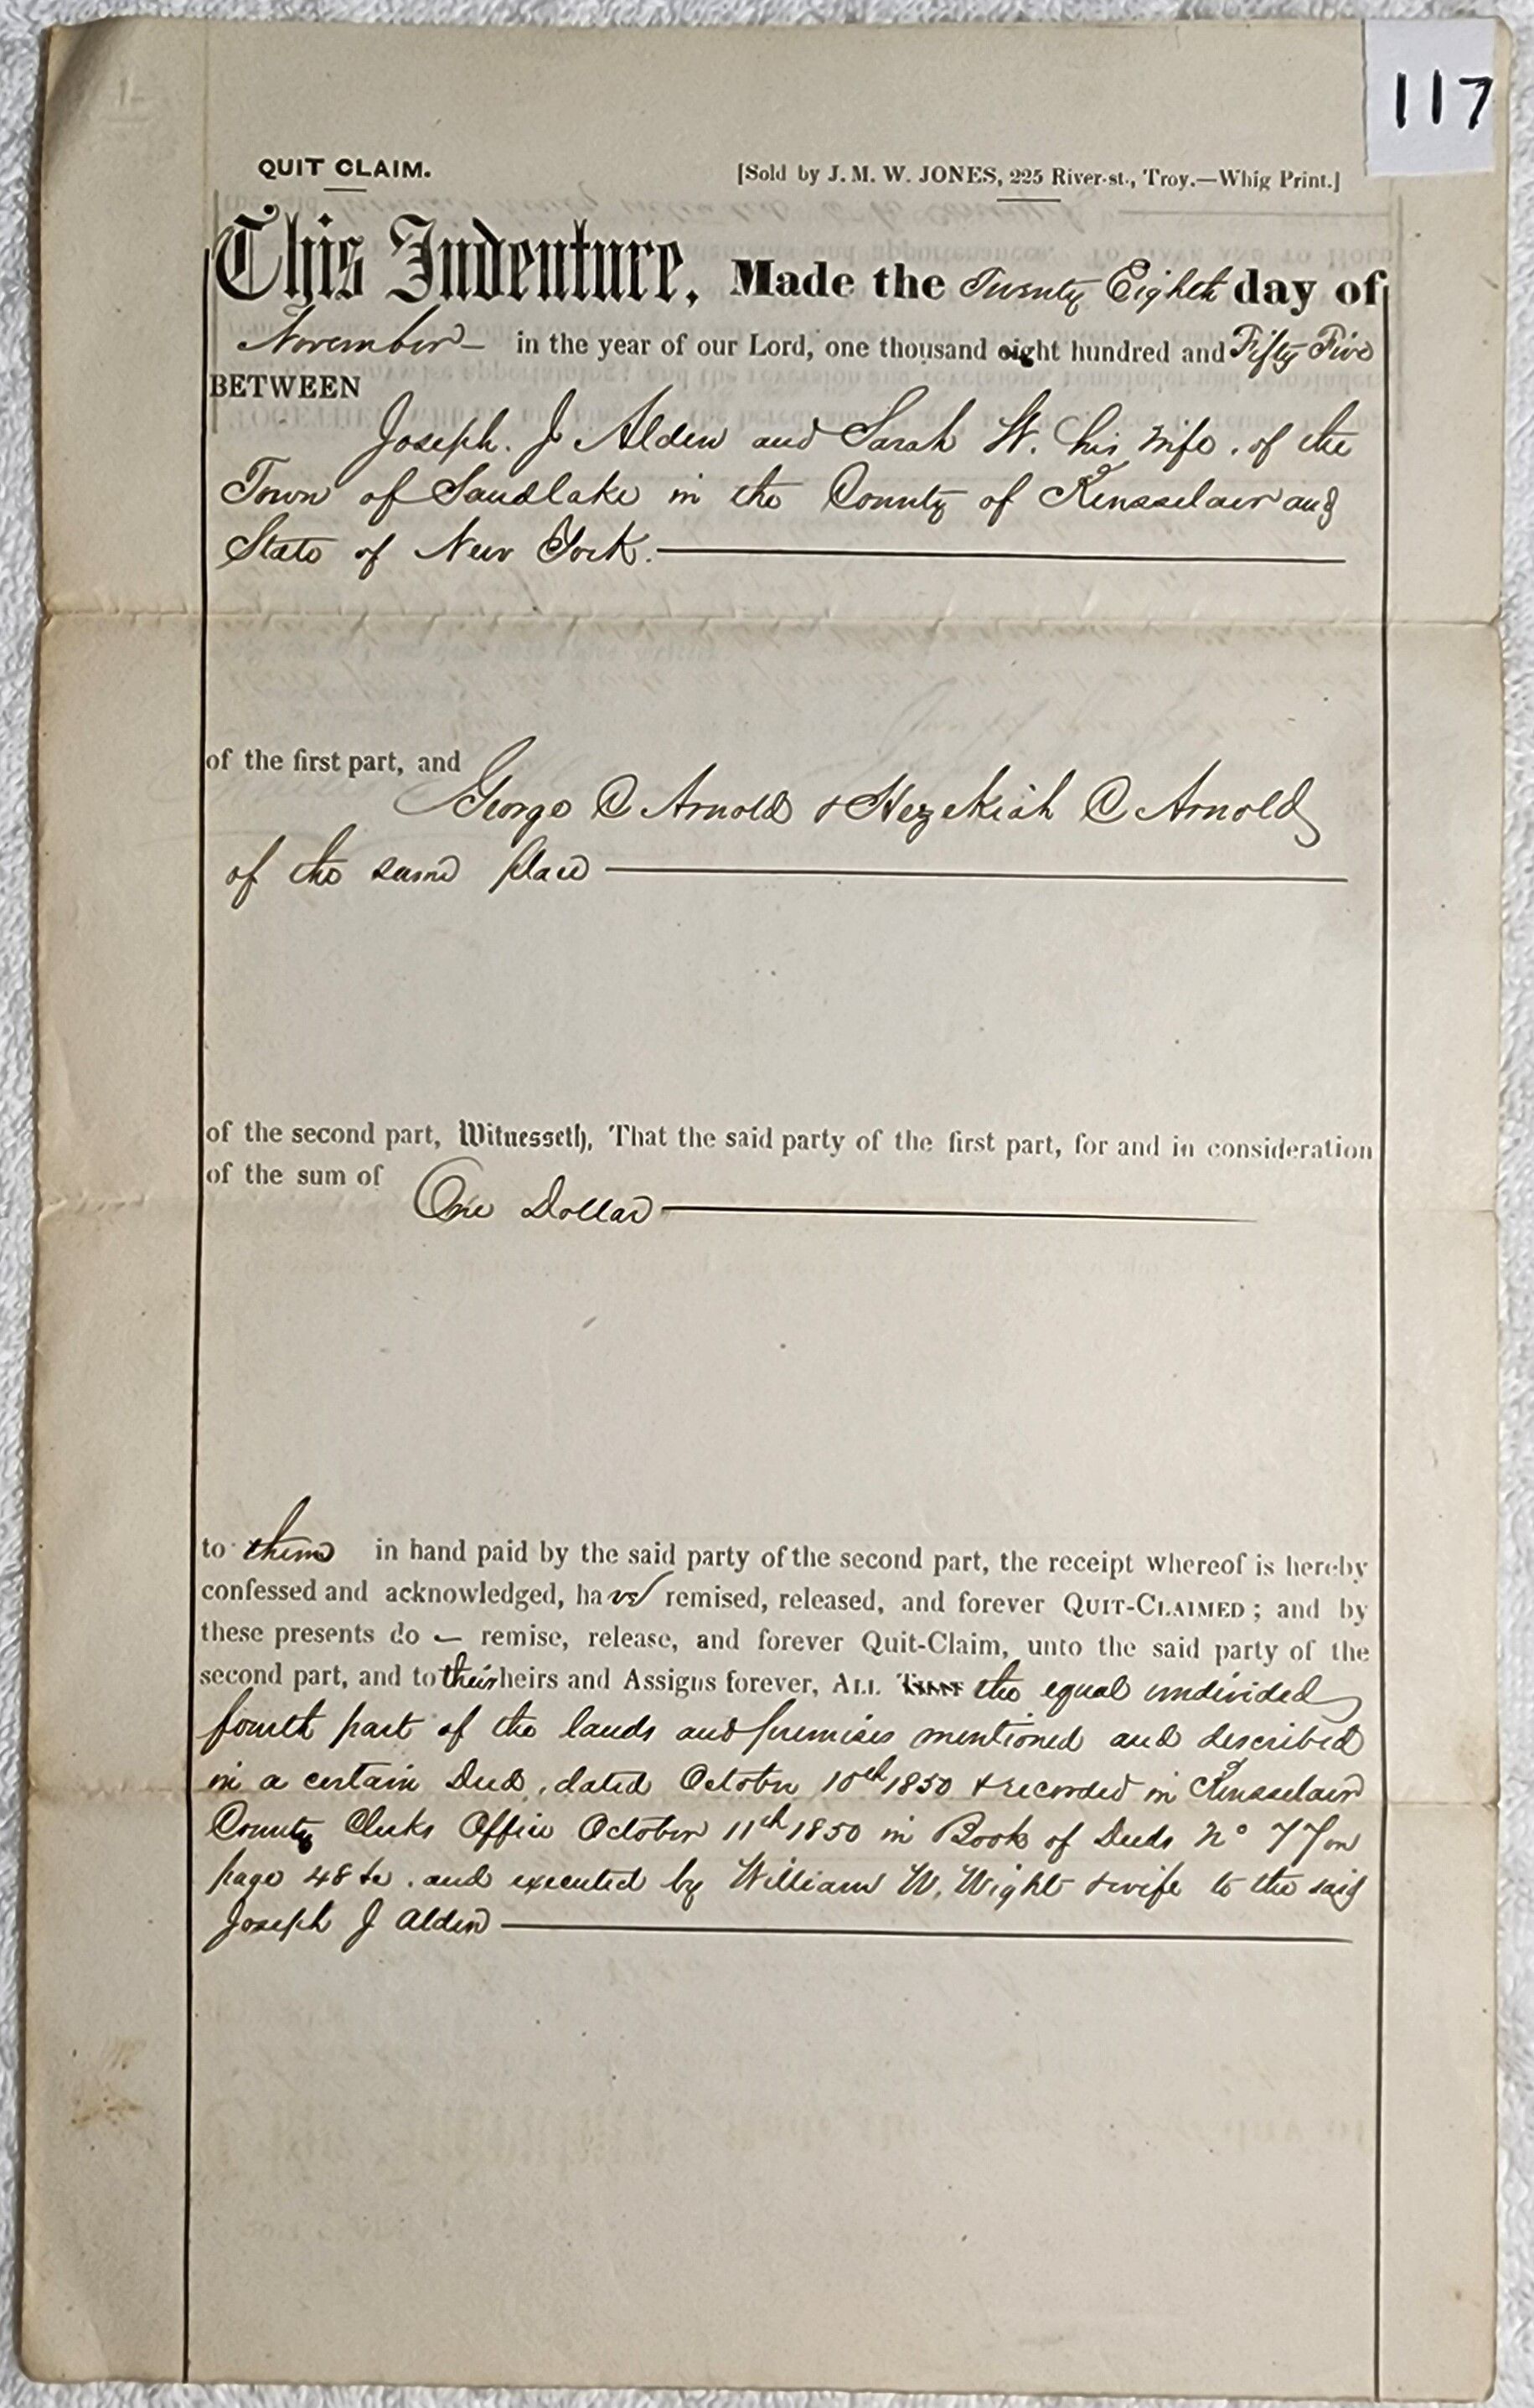 117
QUIT CLAIM.
[Sold by J. M. W. JONES, 225 River-st., Troy.—Whig Print.]
This Indenture, Made the Twenty Eighth day of
November in the year of our Lord, one thousand eight hundred and Fifty Five
BETWEEN
Joseph. J Alden and Sarah W. his wife. of the
Town of Sandlake in the County of Rensselaer and
State of New York.
of the first part, and
George C Arnold & Hezekiah C Arnold
of the same place
of the second part, Witnesseth, That the said party of the first part, for and in consideration
of the sum of
One Dollar
to them in hand paid by the said party of the second part, the receipt whereof is hereby
confessed and acknowledged, have remised, released, and forever QUIT-CLAIMED; and by
these presents do — remise, release, and forever Quit-Claim, unto the said party of the
second part, and to their heirs and Assigns forever, ALL THAT the equal undivided
fourth part of the lands and premises mentioned and described
in a certain Deed, dated October 10th 1850 & recorded in Rensselaer
County Clerks Office October 11th 1850 in Book of Deeds No 77 on
page 48 &c. and executed by William W. Wight & wife to the said
Joseph J Alden